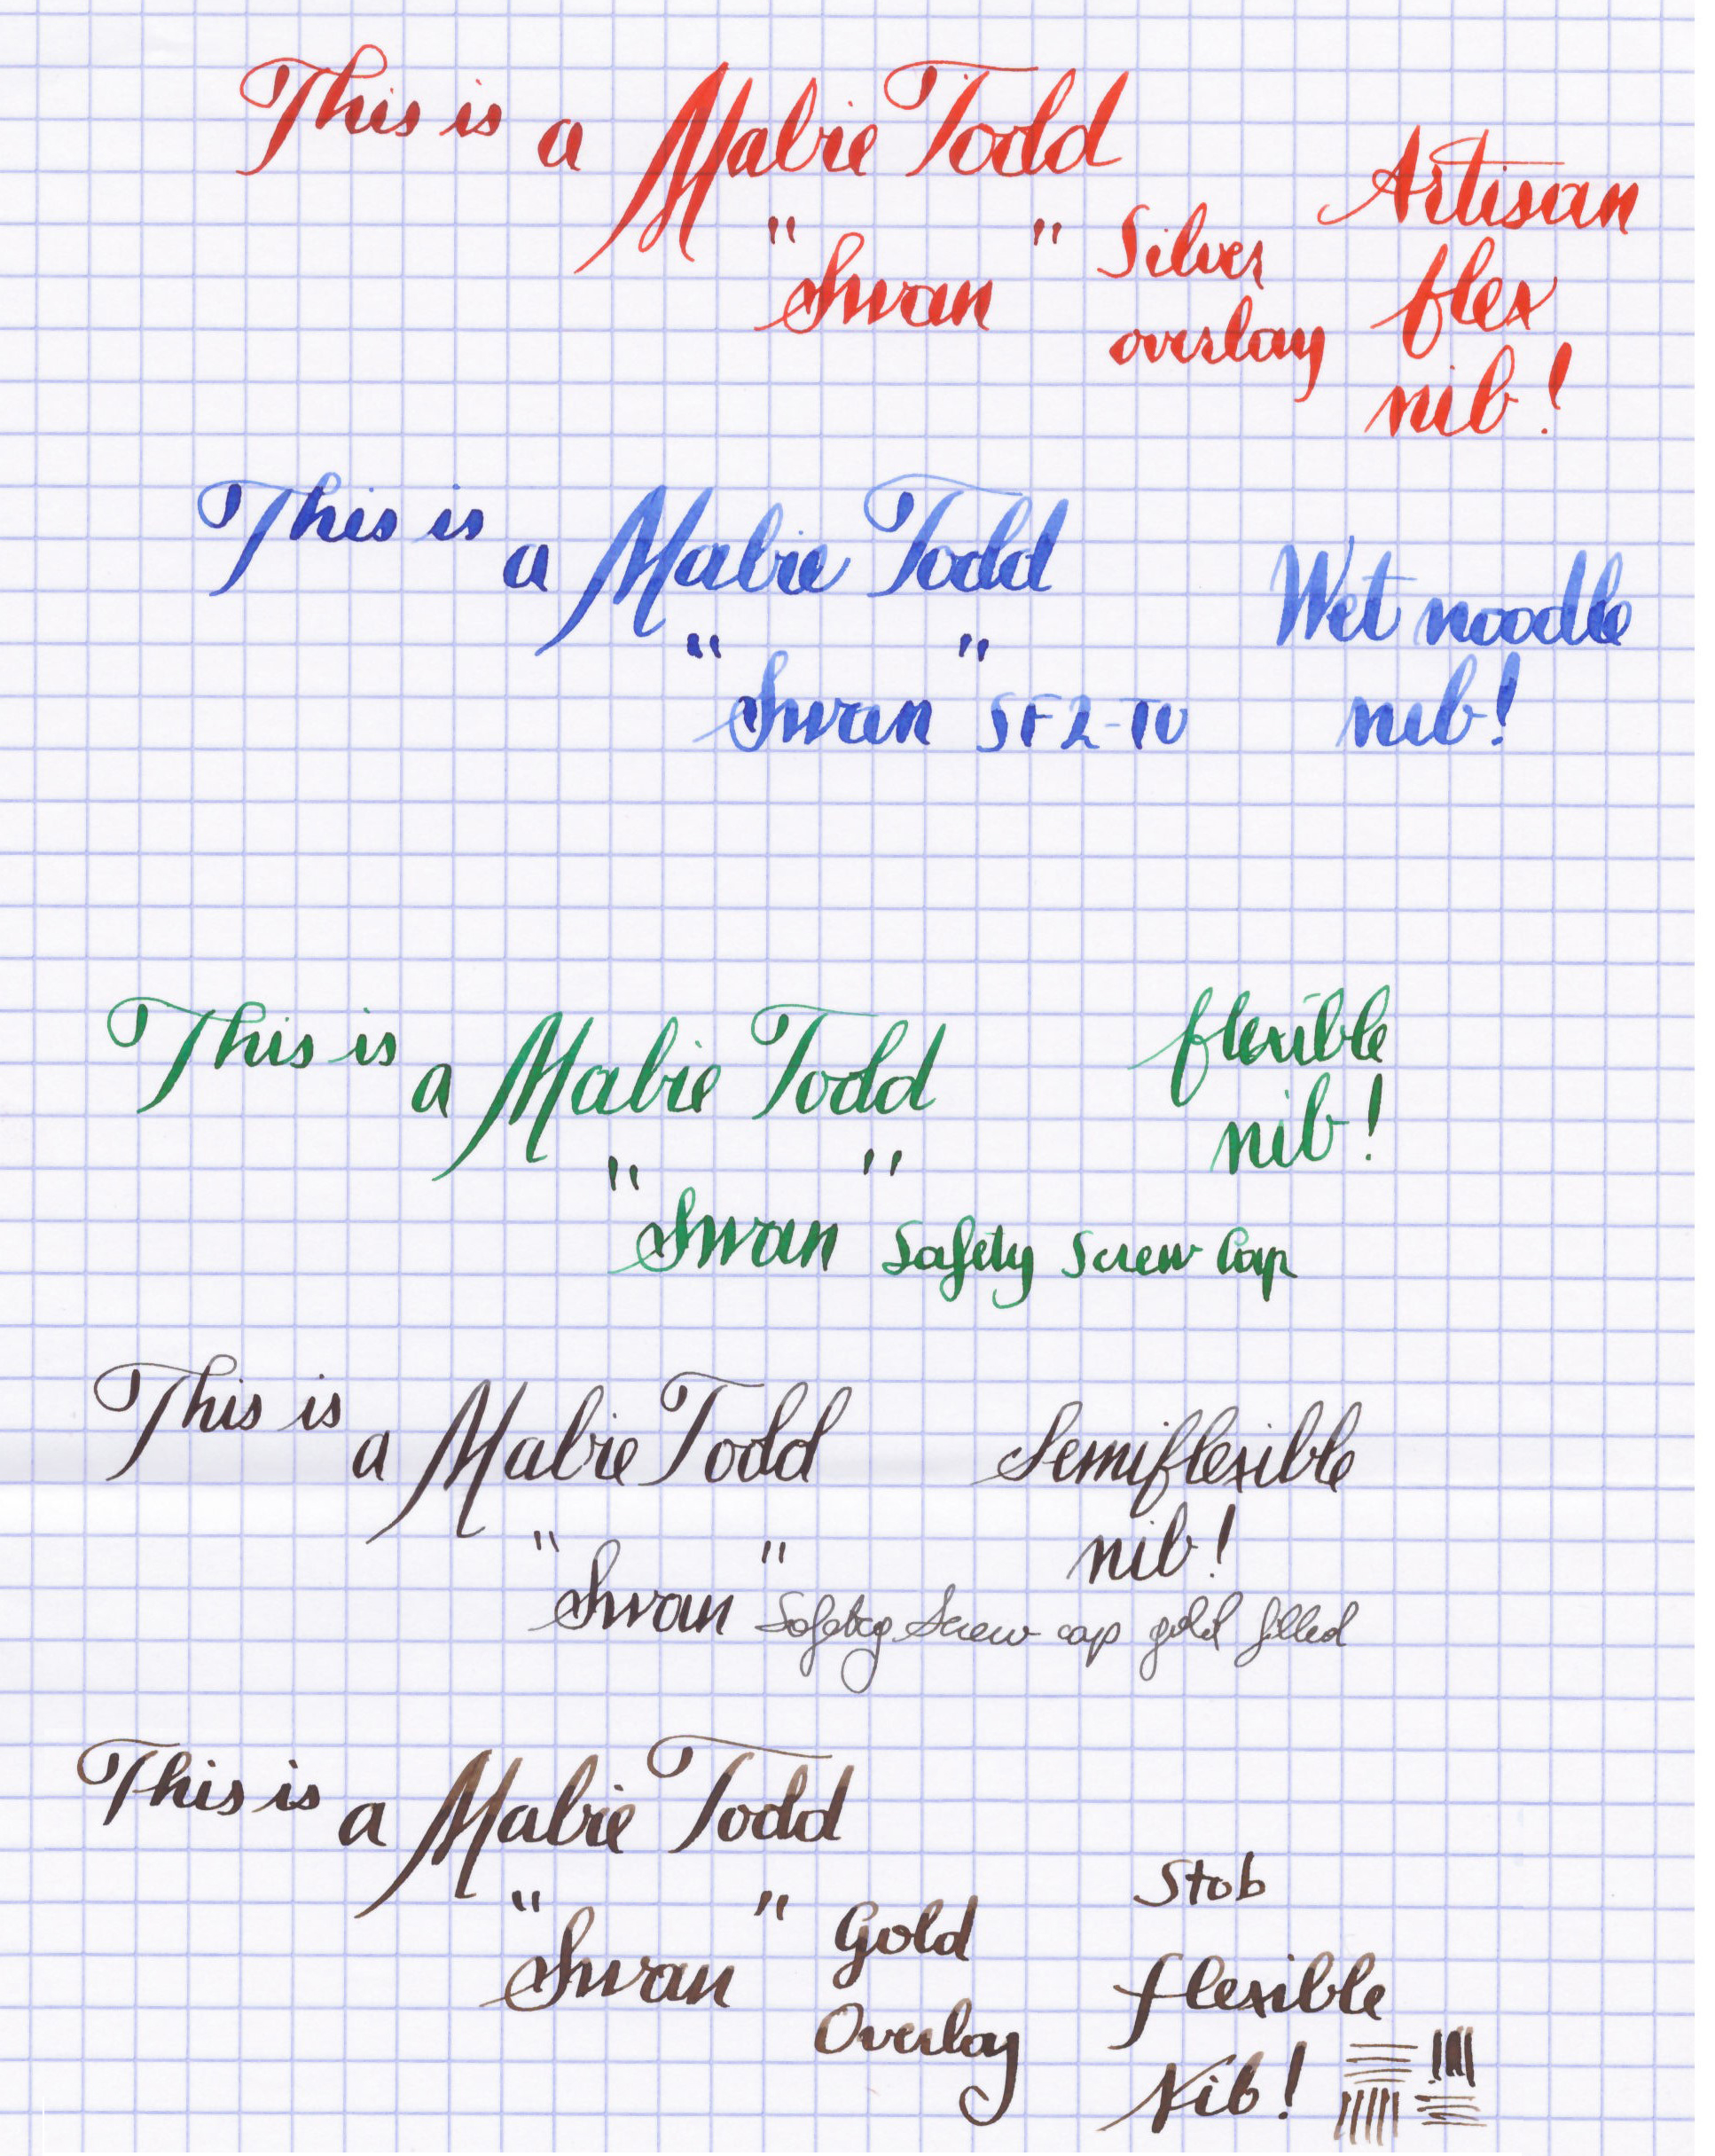 This is a Mabie Todd
"Swan" Silver overlay
Artisan flex nib!
This is a Mabie Todd
"Swan" SF2-TU
Wet noodle nib!
This is a Mabie Todd
"Swan" Safety Screw Cap
flexible nib!
This is a Mabie Todd
"Swan" Safety Screw cap gold filled
Semiflexible nib!
This is a Mabie Todd
"Swan" Gold Overlay
Stob flexible Nib!